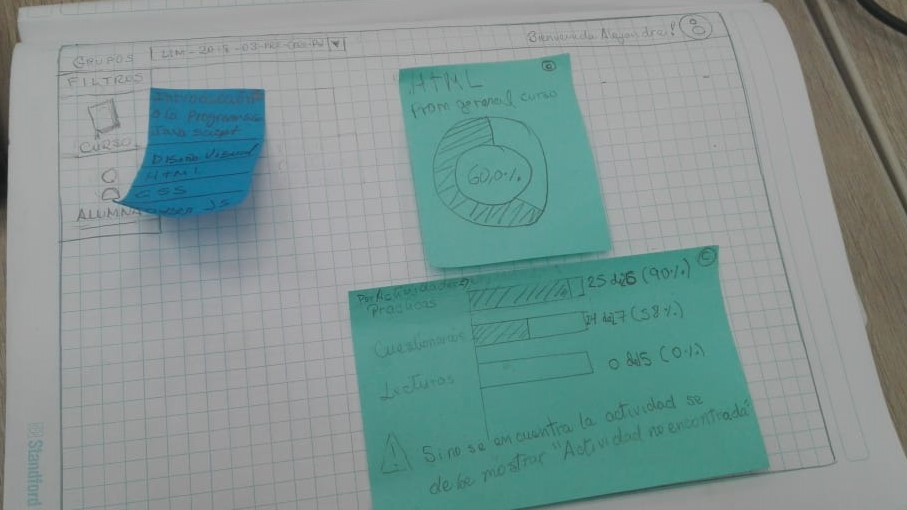 GRUPOS
LIM-2018-03-PRE-
Bienvenida Alejandra!
FILTROS
CURSO
ALUMNA
Introducción
a la Programac
Java Script
Diseño Visual
HTML
CSS
JS
HTML
Prom general curso
60,0%
Por Actividades
Practicas
25 de 26 (90%)
Cuestionarios
(58%)
Lecturas
0 de 15 (0%)
Si no se encuentra la actividad se
debe mostrar "Actividad no encontrada"
Standford